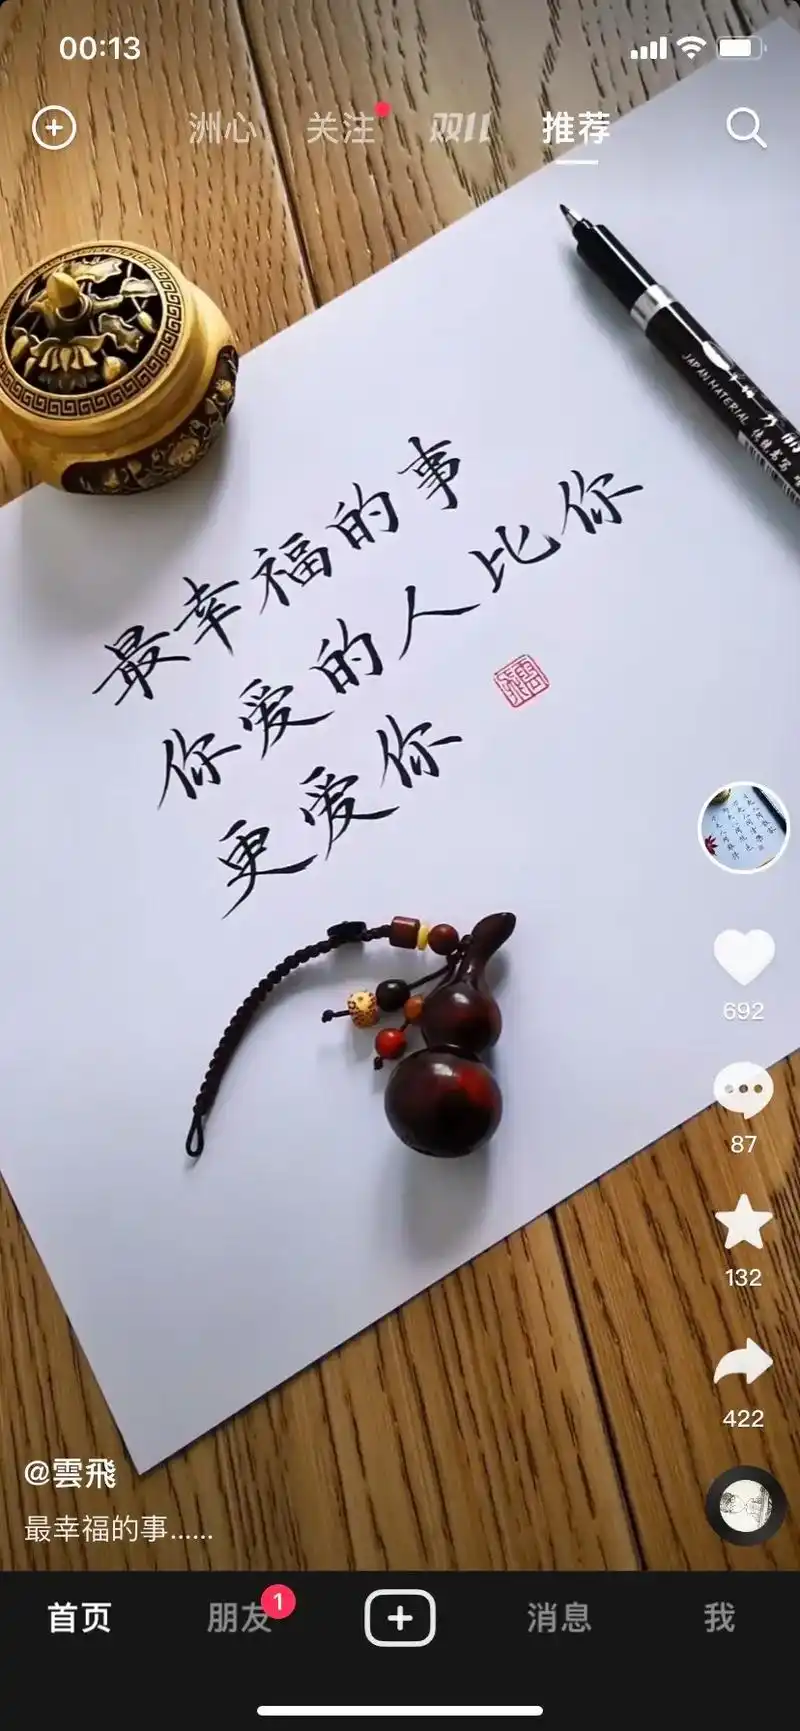 00:13
洲心 关注 双11 推荐
JAPAN MATERIAL
最幸福的事
你爱的人比你
更爱你
692
87
132
422
@雲飛
最幸福的事......
首页 朋友 1 消息 我